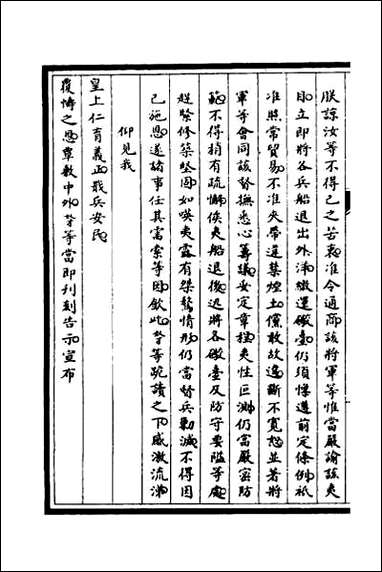 朕諒汝等不得已之苦衷准令通商該將軍等惟當嚴諭該夷
目立即將各兵船退出外洋繳還礮臺仍須懍遵前定條例祇
准照常貿易不准夾帶違禁煙土儻敢故違斷不寬恕並著將
軍等會同該督撫悉心籌議妥定章程夷性叵測仍當嚴密防
範不得稍有疏懈俟夷船退後迅將各礮臺及防守要隘等處
趕緊修築堅固如𠸄夷露有桀驁情形仍當督兵剿滅不得因
已施恩遂諸事任其需索等因欽此等跪讀之下感激流涕
仰見我
皇上仁育義正戢兵安民
覆幬之恩羣敷中外等當即刊刻告示宣布